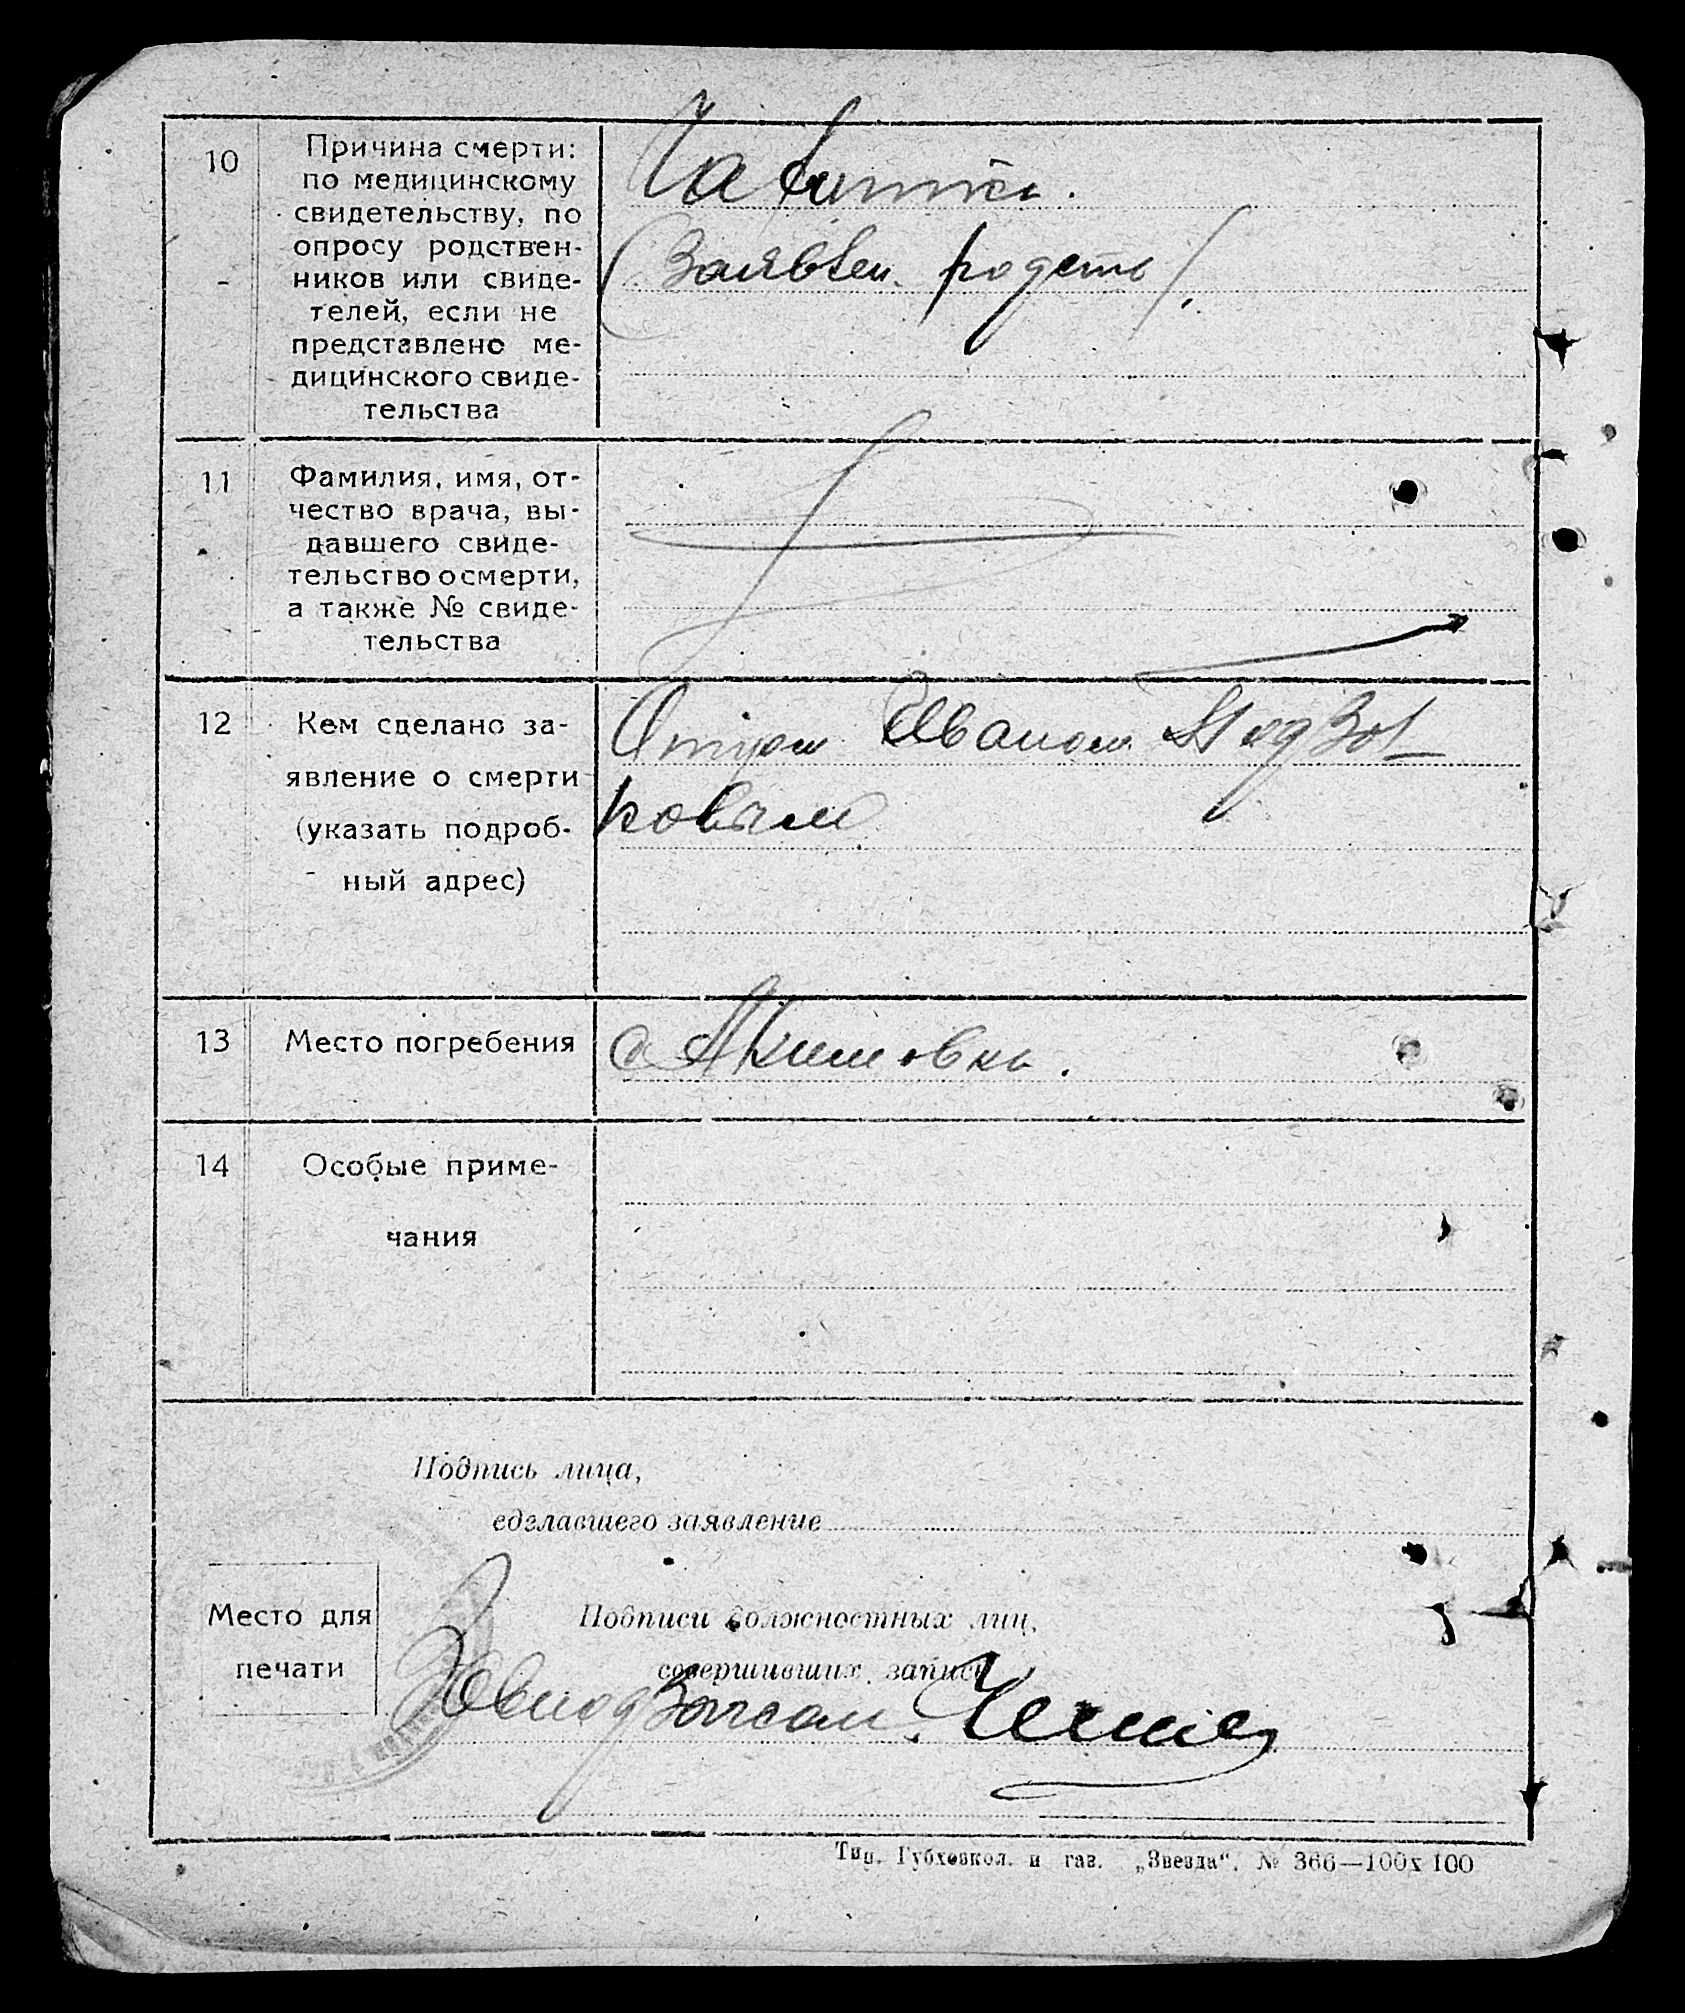 10
Причина смерти:
по медицинскому
свидетельству, по
опросу родствен-
ников или свиде-
телей, если не
представлено ме-
дицинского свиде-
тельства
(Заявлен. родств).
11
Фамилия, имя, от-
чество врача, вы-
давшего свиде-
тельство о смерти,
а также № свиде-
тельства
12
Кем сделано за-
явление о смерти
(указать подроб-
ный адрес)
Отцом Иваном
ковым
13
Место погребения
с Акимовка.
14
Особые приме-
чания
Подпись лица,
сделавшего заявление
Место для
печати
Подписи должностных лиц,
совершивших запись
Тип. Губховкол. и газ. „Звезда“. № 366—100х100